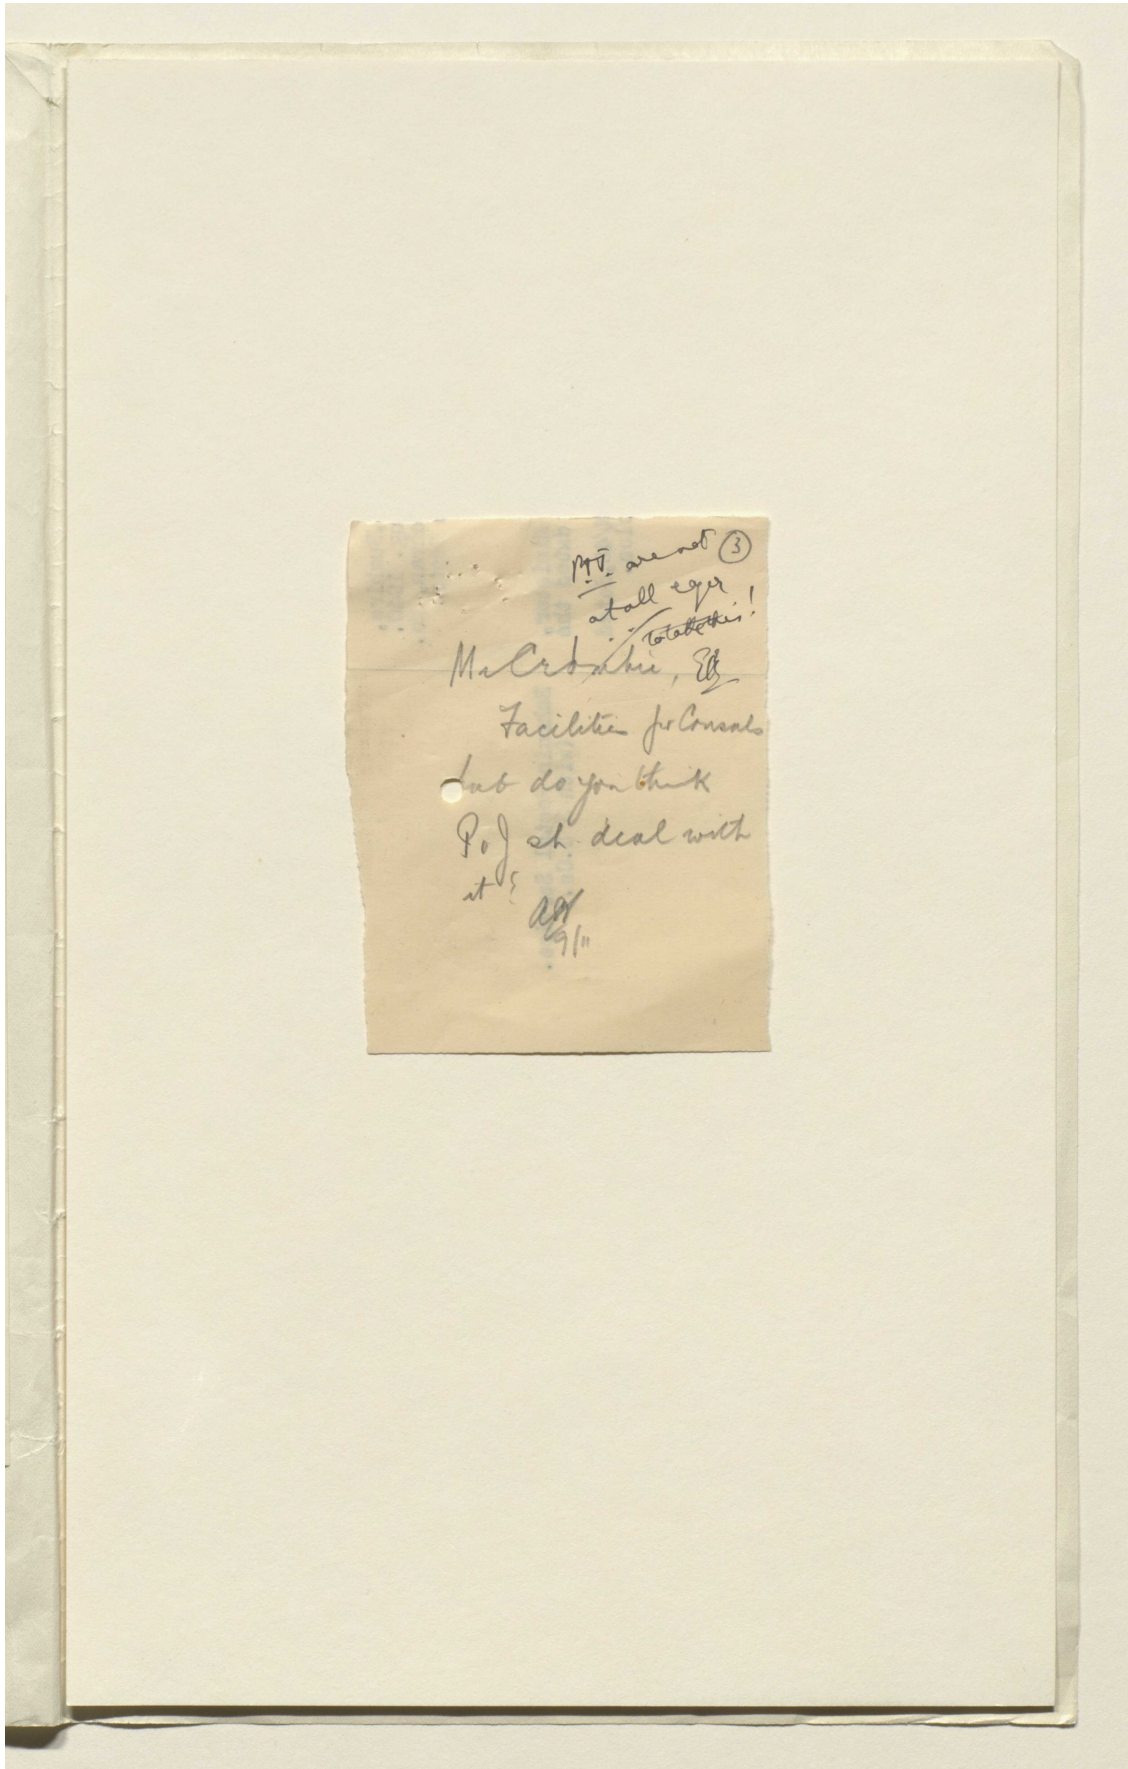 P.T. are not ③
at all eager
to take this!
Mr Crombie, EG
Facilities for Consuls
but do you think
P & J sh. deal with
it?
9/11